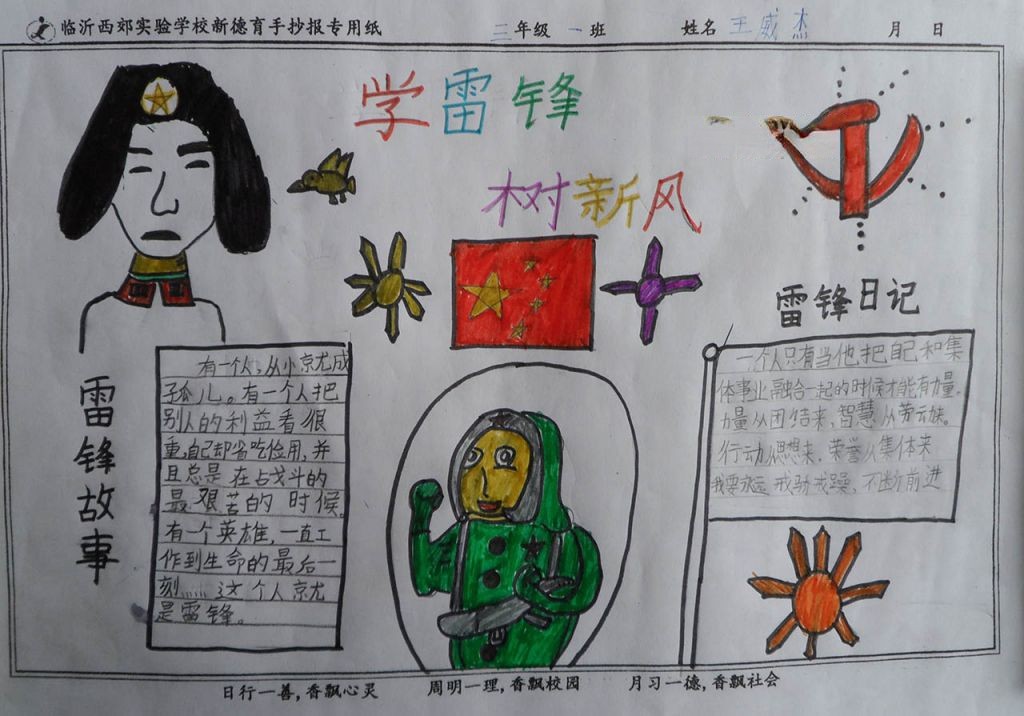 临沂西郊实验学校新德育手抄报专用纸 三年级 一班 姓名 王威杰 月 日
学雷锋
树新风
雷锋日记
雷锋故事
有一个人,从小京尤成
孤儿。有一个人把
别人的利益看很
重,自己却省吃俭用,并
且总是在占戈斗的
最艰苦的时候。
有一个英雄,一直工
作到生命的最后一
刻……这个人京尤
是雷锋。
一个人只有当他把自己和集
体事业融合一起的时候才能有力量。
力量从团结来,智慧从劳动来。
行动从思想来,荣誉从集体来
我要永远戒骄戒躁、不断前进
日行一善,香飘心灵 周明一理,香飘校园 月习一德,香飘社会